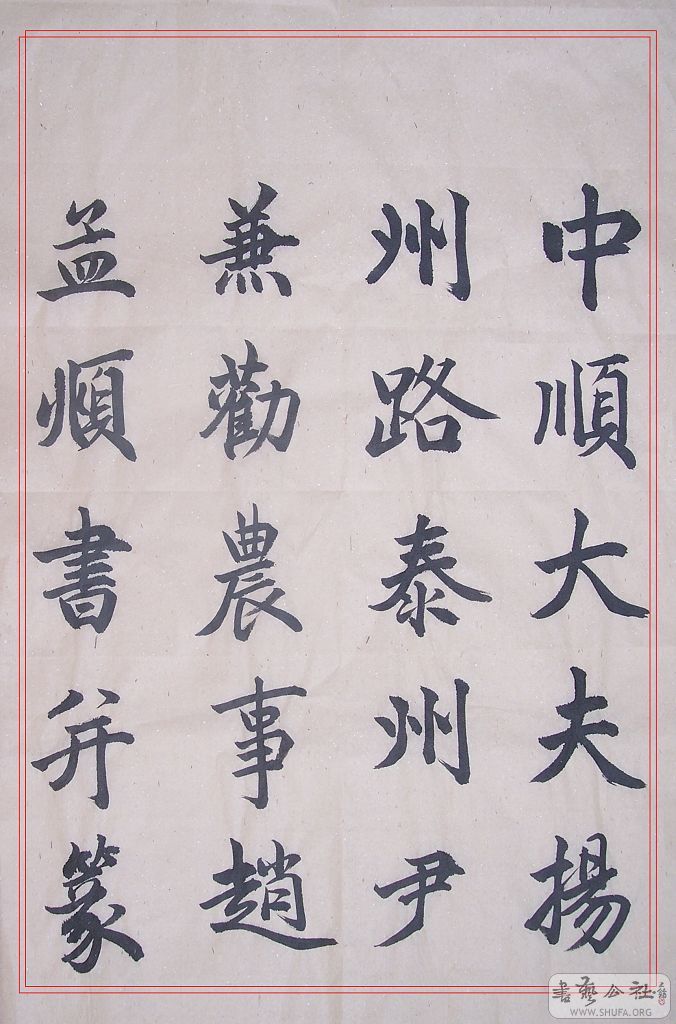 中順大夫揚
州路泰州尹
兼勸農事趙
孟頫書并篆
書藝公社
WWW.SHUFA.ORG